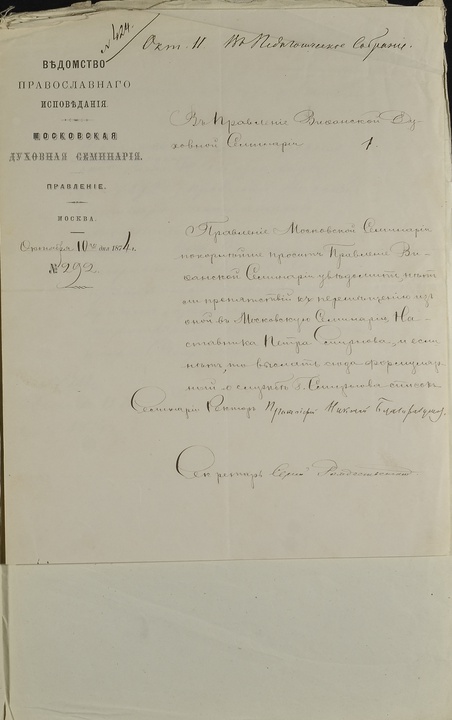 № 424.
Окт. 11 Въ Педагогическое Собраніе.
ВѢДОМСТВО
ПРАВОСЛАВНАГО
ИСПОВѢДАНІЯ
МОСКОВСКАЯ
ДУХОВНАЯ СЕМИНАРІЯ.
ПРАВЛЕНІЕ.
МОСКВА.
Октября 10 дня 1874 г.
№ 292
Въ Правленіе Виѳанской Ду-
ховной Семинаріи
1.
Правленіе Московской Семинаріи
покорнѣйше проситъ Правленіе Ви-
ѳанской Семинаріи увѣдомить, нѣтъ
ли препятствій къ перемѣщенію изъ
оной въ Московскую Семинарію На-
ставника Петра Смирнова, и если
нѣтъ, то выслать сюда формуляр-
ный о службѣ г. Смирнова списокъ.
Семинаріи Ректоръ Протоіерей Николай Благоразумовъ
Секретарь Сергій